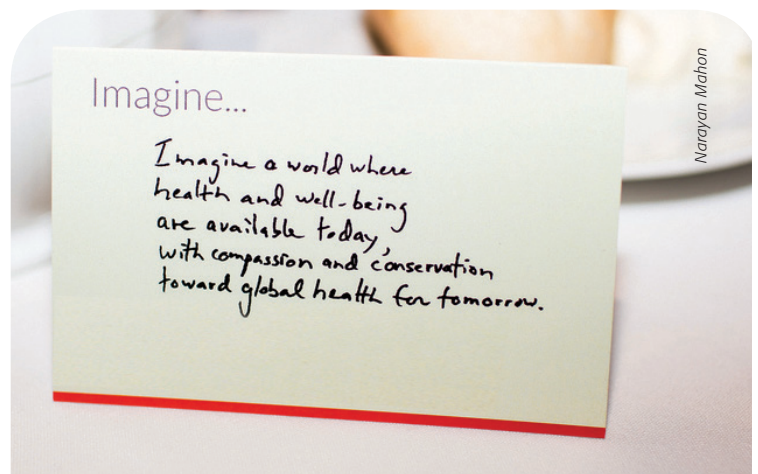 Imagine...
Imagine a world where
health and well-being
are available today,
with compassion and conservation
toward global health for tomorrow.
Narayan Mahon